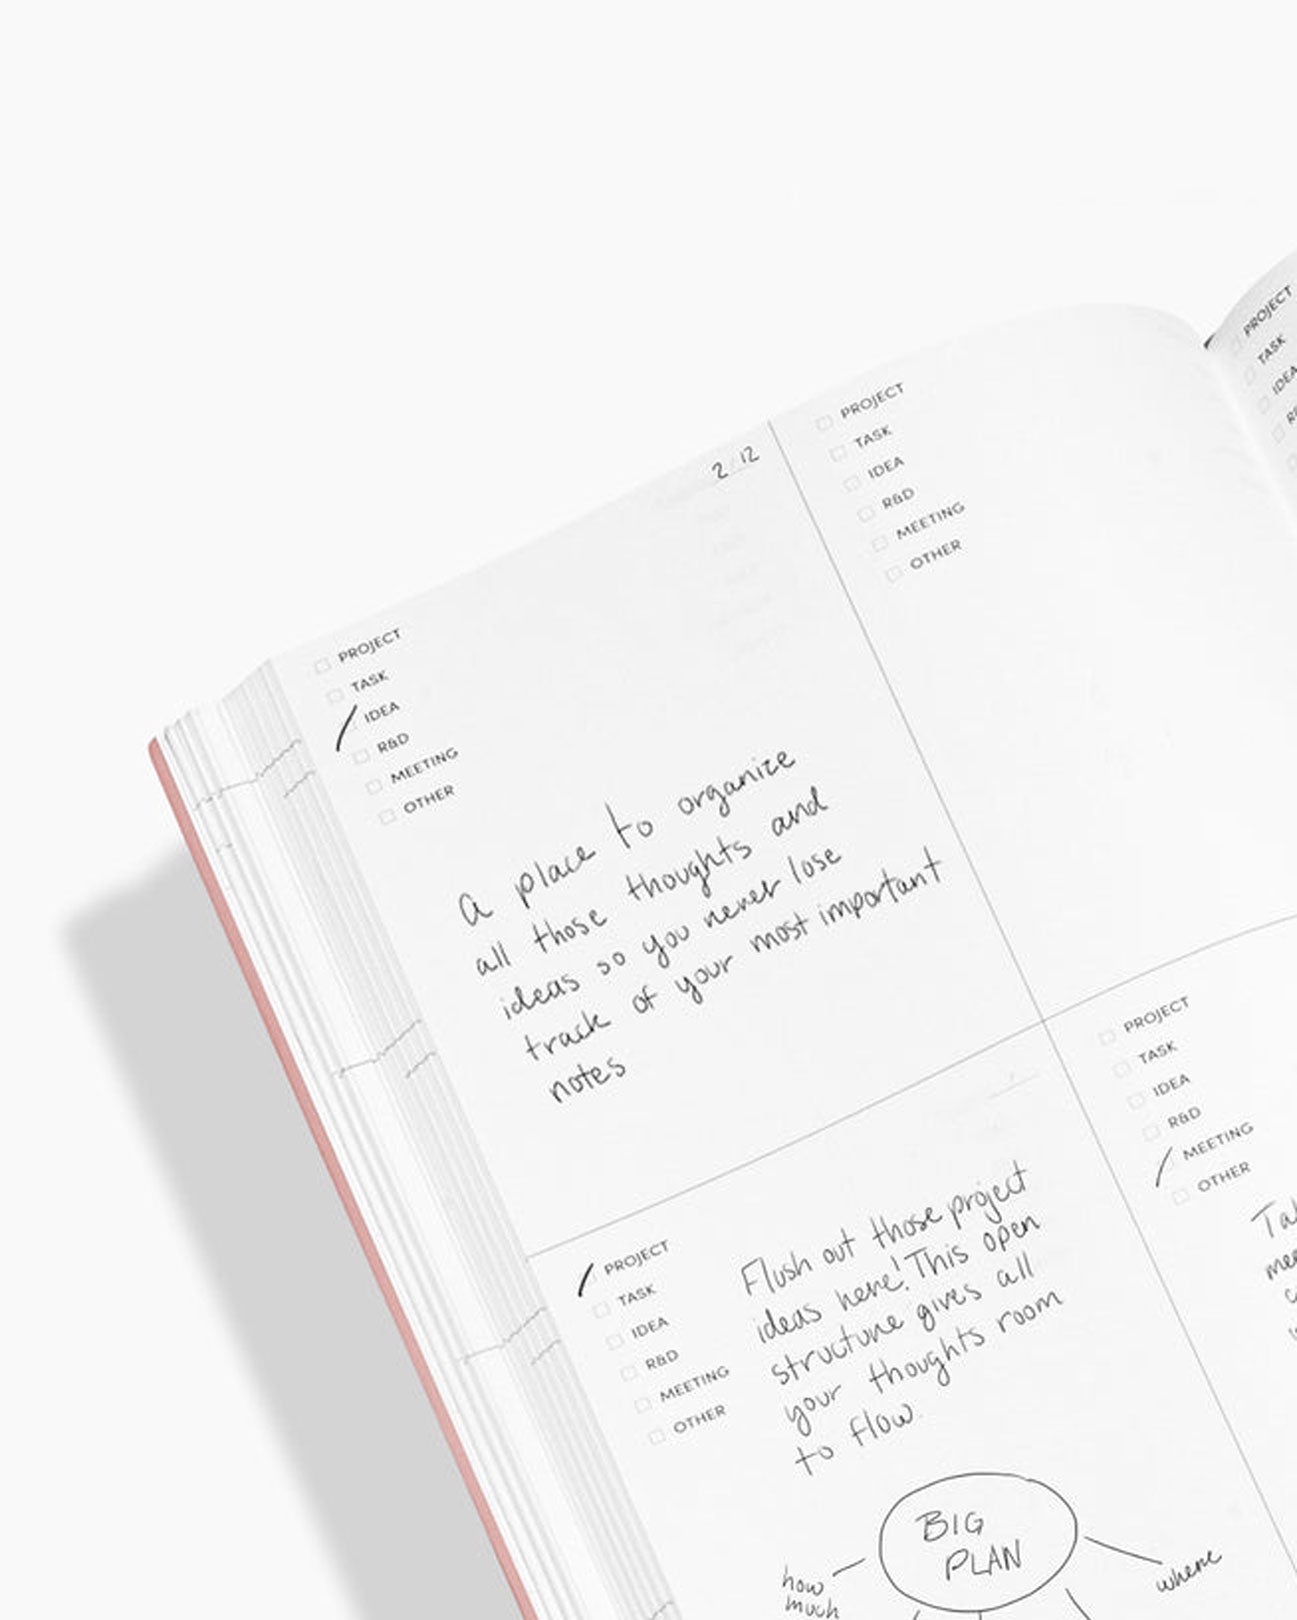 2/12
PROJECT
TASK
IDEA
R&D
MEETING
OTHER
A place to organize
all those thoughts and
ideas so you never lose
track of your most important
notes
PROJECT
TASK
IDEA
R&D
MEETING
OTHER
PROJECT
TASK
IDEA
PROJECT
TASK
IDEA
R&D
MEETING
OTHER
Flush out those project
ideas here! This open
structure gives all
your thoughts room
to flow.
BIG
PLAN
how
much
where
PROJECT
TASK
IDEA
R&D
MEETING
OTHER